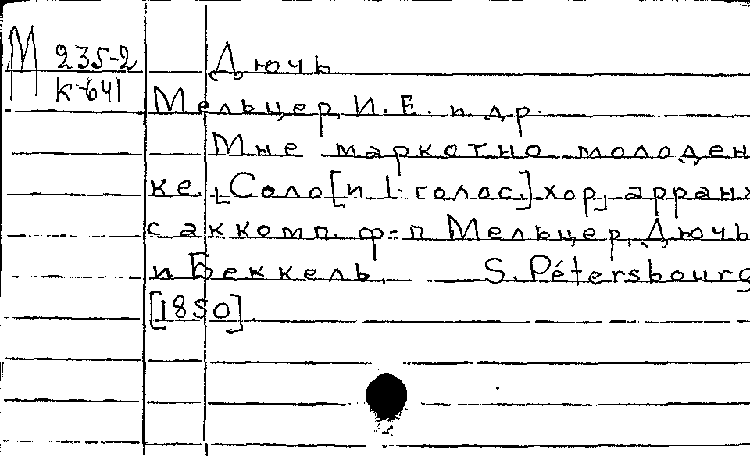 М 235-2 Дючь
к-641 Мельцер, И. Е. и др.
Мне маркотно молоден
ке. [Соло [и 1. голос.] хор] арранж
с аккомп. ф-п Мельцер, Дючь
и Беккель. S. Pétersbourg
[1850]